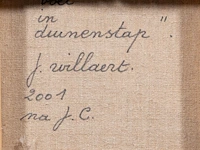 in
duinenstap".
J. Willaert.
2001
na J.C.